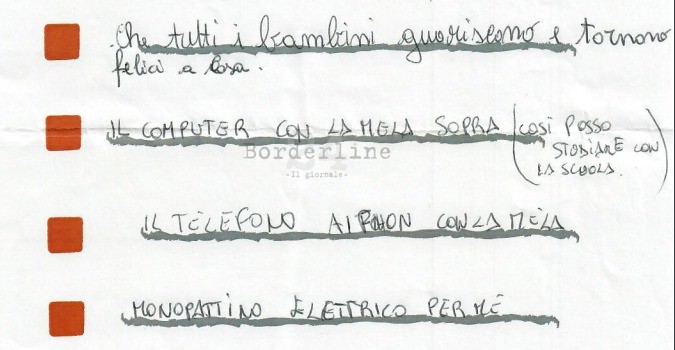 Che tutti i bambini guariscono e tornono
felici a casa.
IL COMPUTER CON LA MELA SOPRA (COSÌ POSSO
STUDIARE CON
LA SCUOLA.)
Borderline
-Il giornale-
IL TELEFONO AIPHON CON LA MELA
MONOPATTINO ELETTRICO PER ME